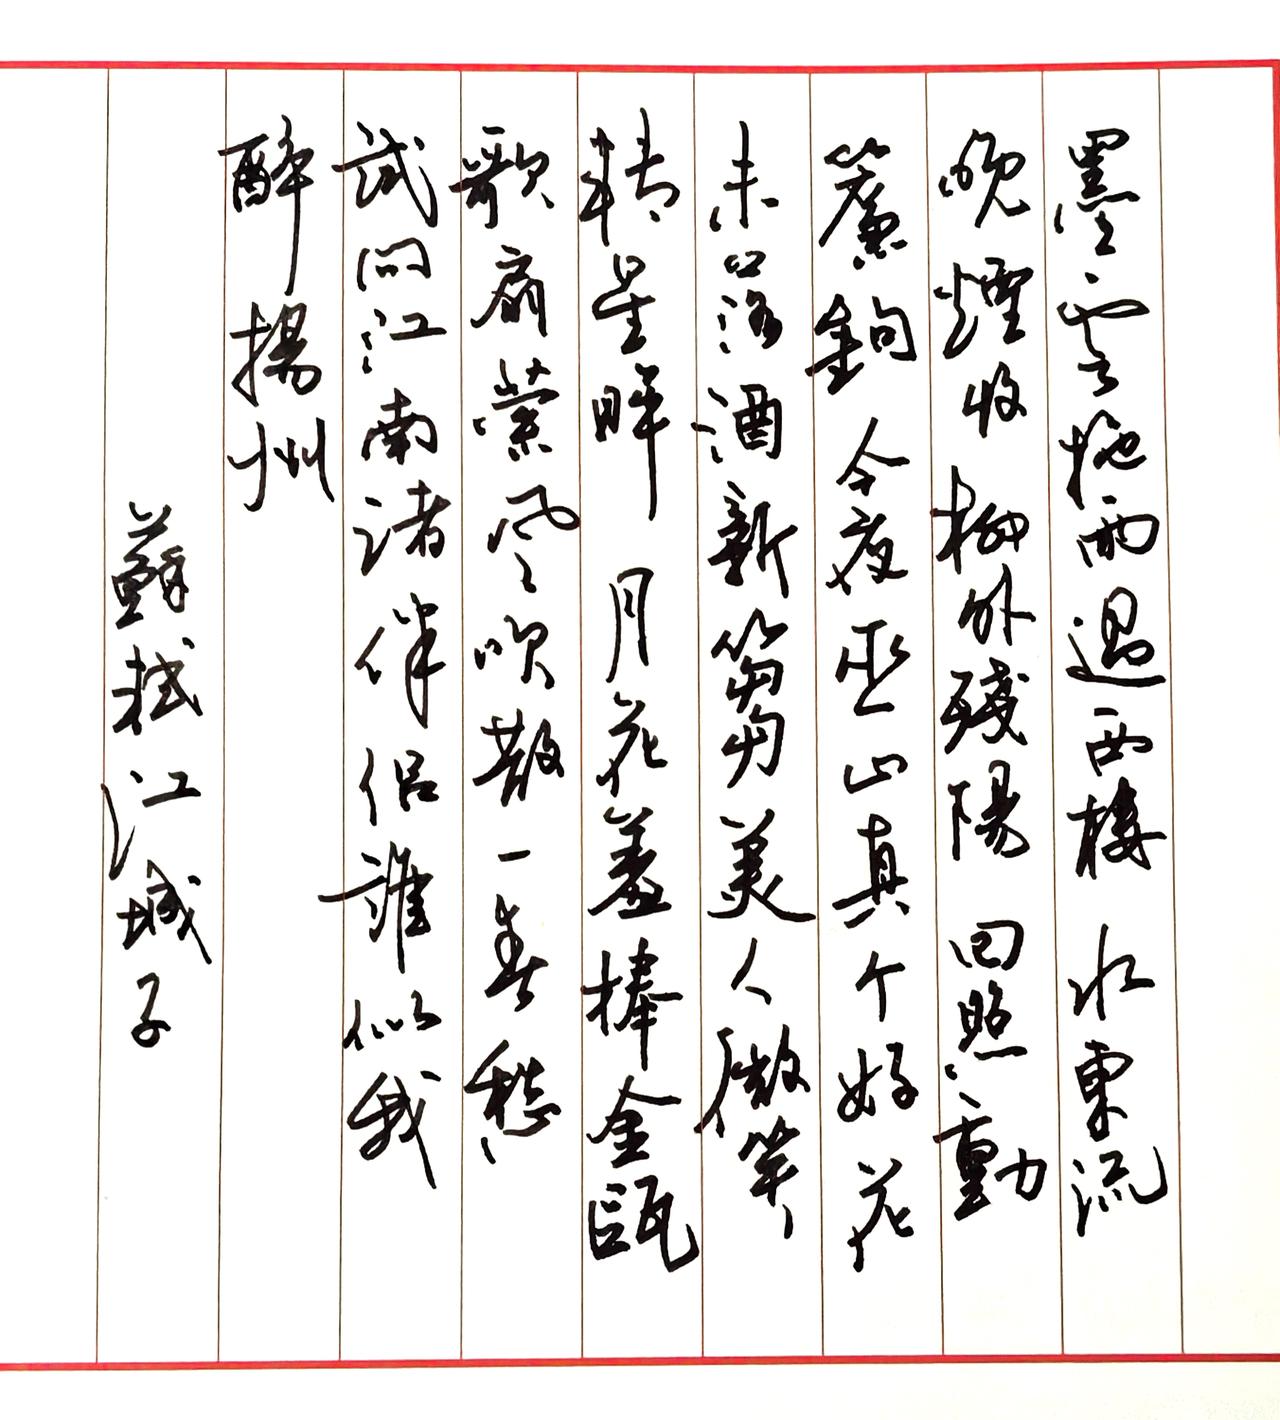 墨雲拖雨過西樓 水東流
晚煙收 柳外殘陽 回照動
簾鉤 今夜巫山真个好花
未落酒新篘美人微笑
轉星眸 月花羞捧金甌
歌扇縈風吹散一春愁
試問江南諸伴侶誰似我
醉揚州
蘇軾江城子